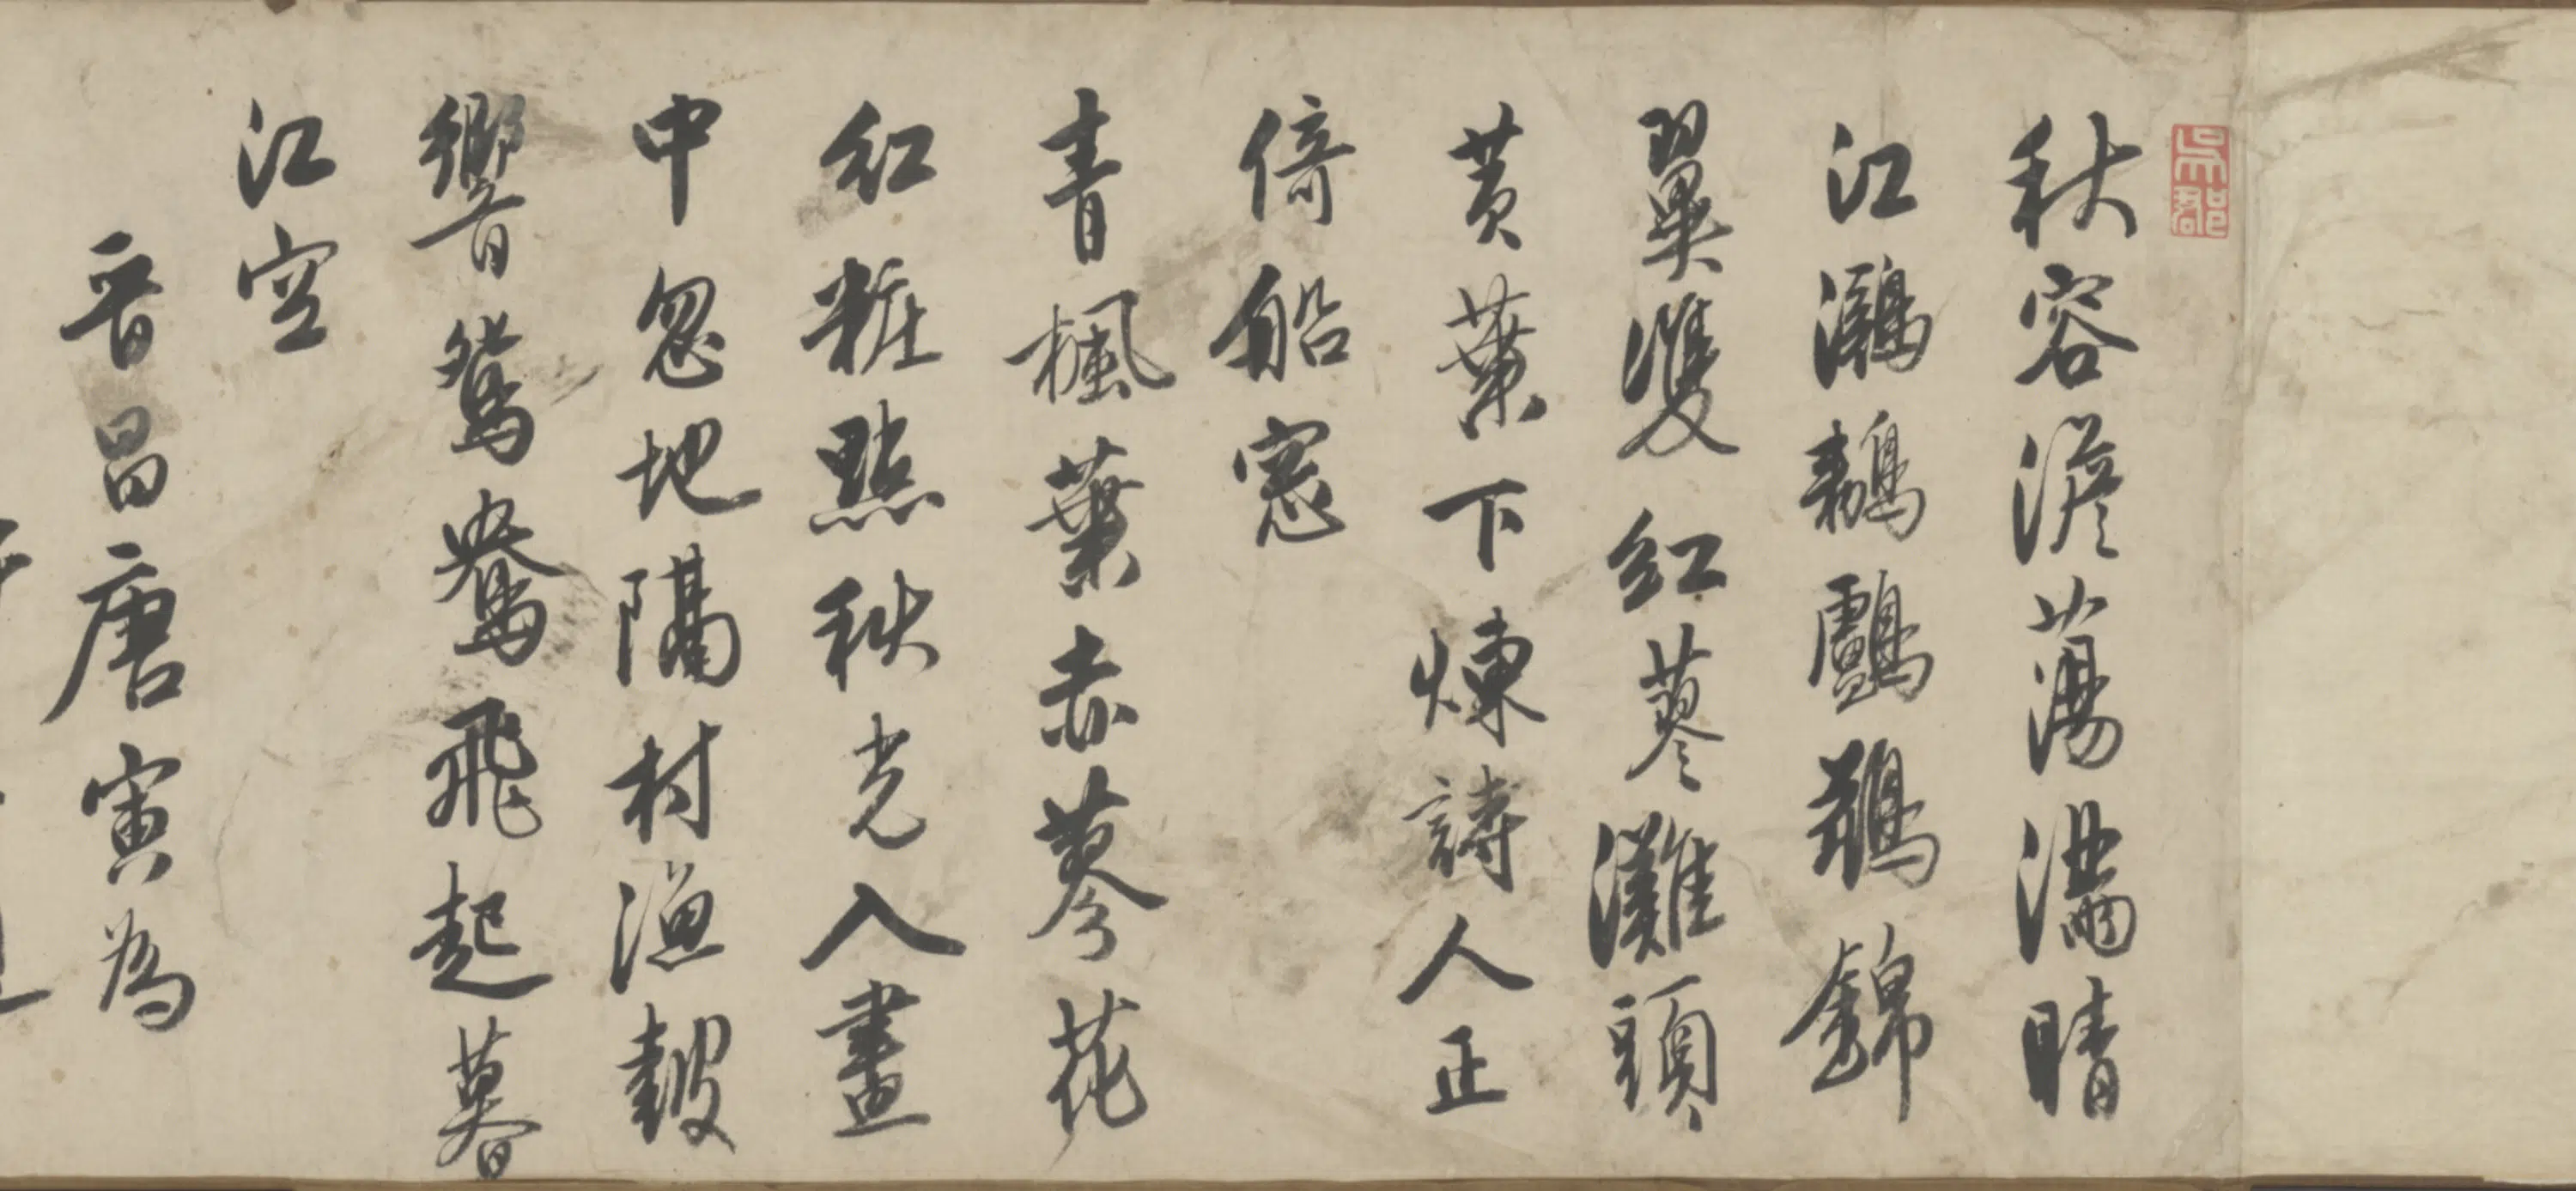 吳郡
秋容澹蕩滿晴
江鸂鶒鸕鶿錦
翼雙紅蓼灘頭
黃葉下煉詩人正
倚船窓
青楓葉赤蓼花
紅粧點秋光入畫
中忽地隔村漁皷
響鴛鴦飛起暮
江空
晉昌唐寅為